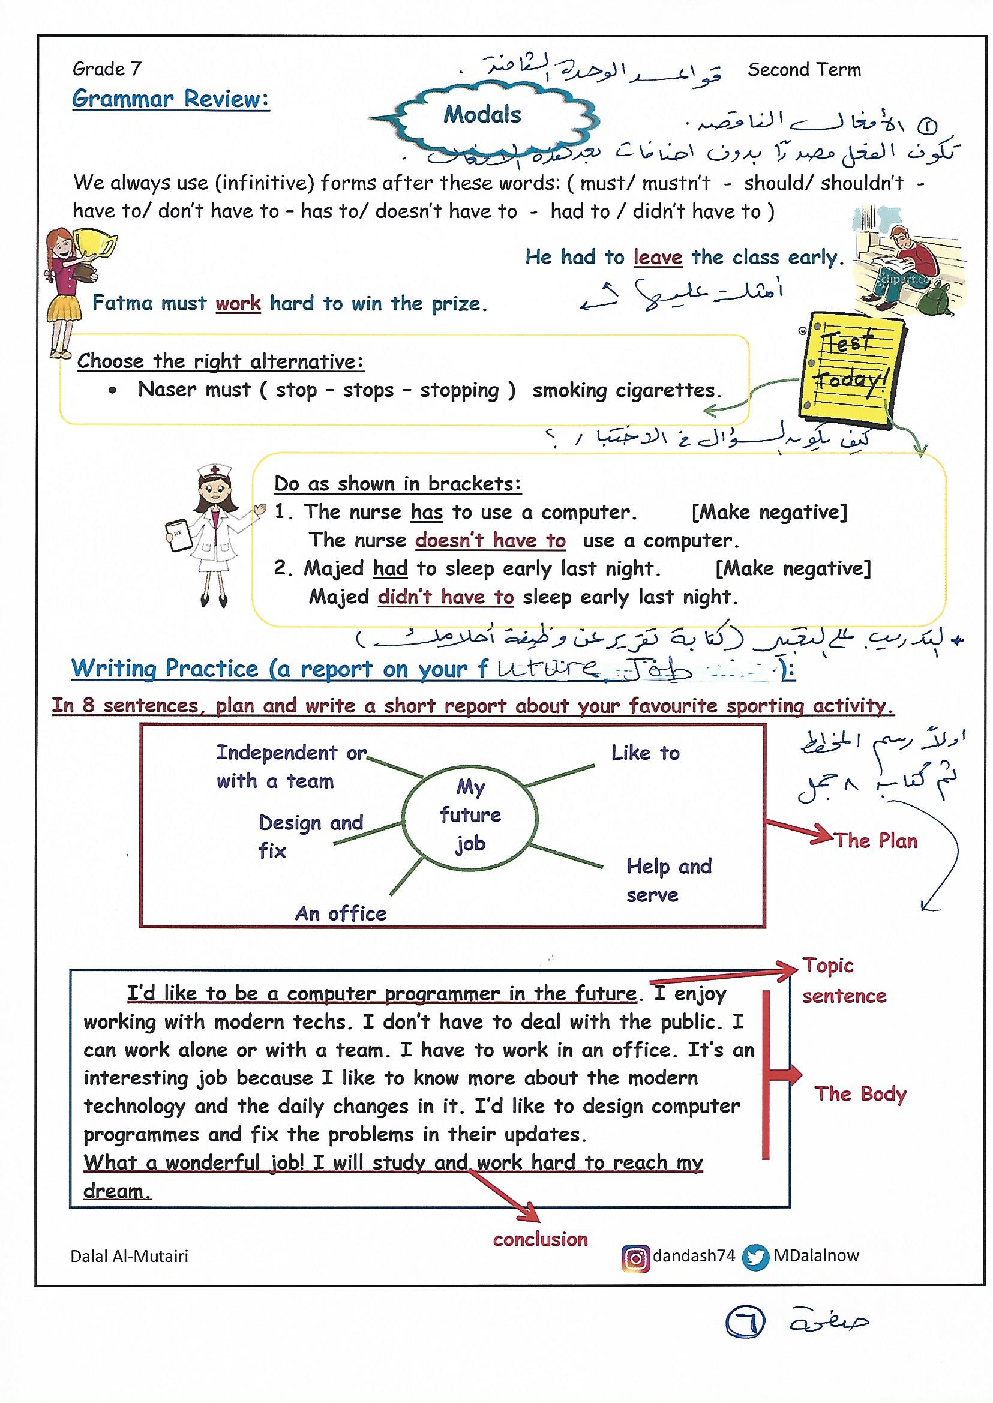 Grade 7
قواعد الوحدة الثامنة .
Second Term
Grammar Review:
Modals
① الأفعال الناقصة .
تكون الفعل مصدرًا بدون اضافات بعد هذه الأفعال .
We always use (infinitive) forms after these words: ( must/ mustn't - should/ shouldn't -
have to/ don't have to - has to/ doesn't have to - had to / didn't have to )
He had to leave the class early.
أمثلة عليها
Fatma must work hard to win the prize.
Test
Today!
Choose the right alternative:
• Naser must ( stop - stops - stopping ) smoking cigarettes.
كيف يكون السؤال في الاختبار ؟
Do as shown in brackets:
1. The nurse has to use a computer. [Make negative]
The nurse doesn't have to use a computer.
2. Majed had to sleep early last night. [Make negative]
Majed didn't have to sleep early last night.
* التدريب على التعبير (كتابة تقرير عن وظيفة أحلامك)
Writing Practice (a report on your future Job ......):
In 8 sentences, plan and write a short report about your favourite sporting activity.
اولاً رسم المخطط
ثم كتابة ٨ جمل
Independent or
with a team
Like to
My
future
job
Design and
fix
Help and
serve
An office
The Plan
Topic
sentence
I'd like to be a computer programmer in the future. I enjoy
working with modern techs. I don't have to deal with the public. I
can work alone or with a team. I have to work in an office. It's an
interesting job because I like to know more about the modern
technology and the daily changes in it. I'd like to design computer
programmes and fix the problems in their updates.
What a wonderful job! I will study and work hard to reach my
dream.
The Body
conclusion
Dalal Al-Mutairi
dandash74
MDalalnow
صفحة ٦